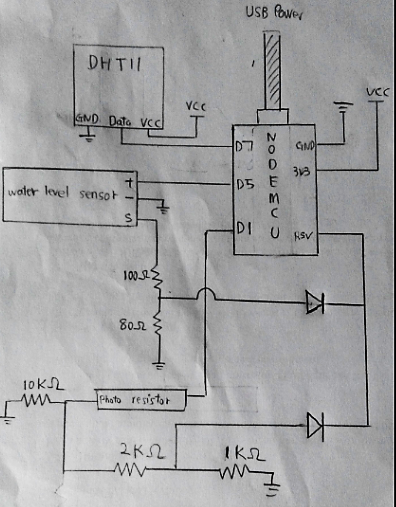 USB Power
DHT11
GND Data VCC
VCC
VCC
D7
NODEMCU
GND
3V3
water level sensor
+
-
S
D5
D1
RSV
100Ω
80Ω
10KΩ
Photo resistor
2KΩ
1KΩ